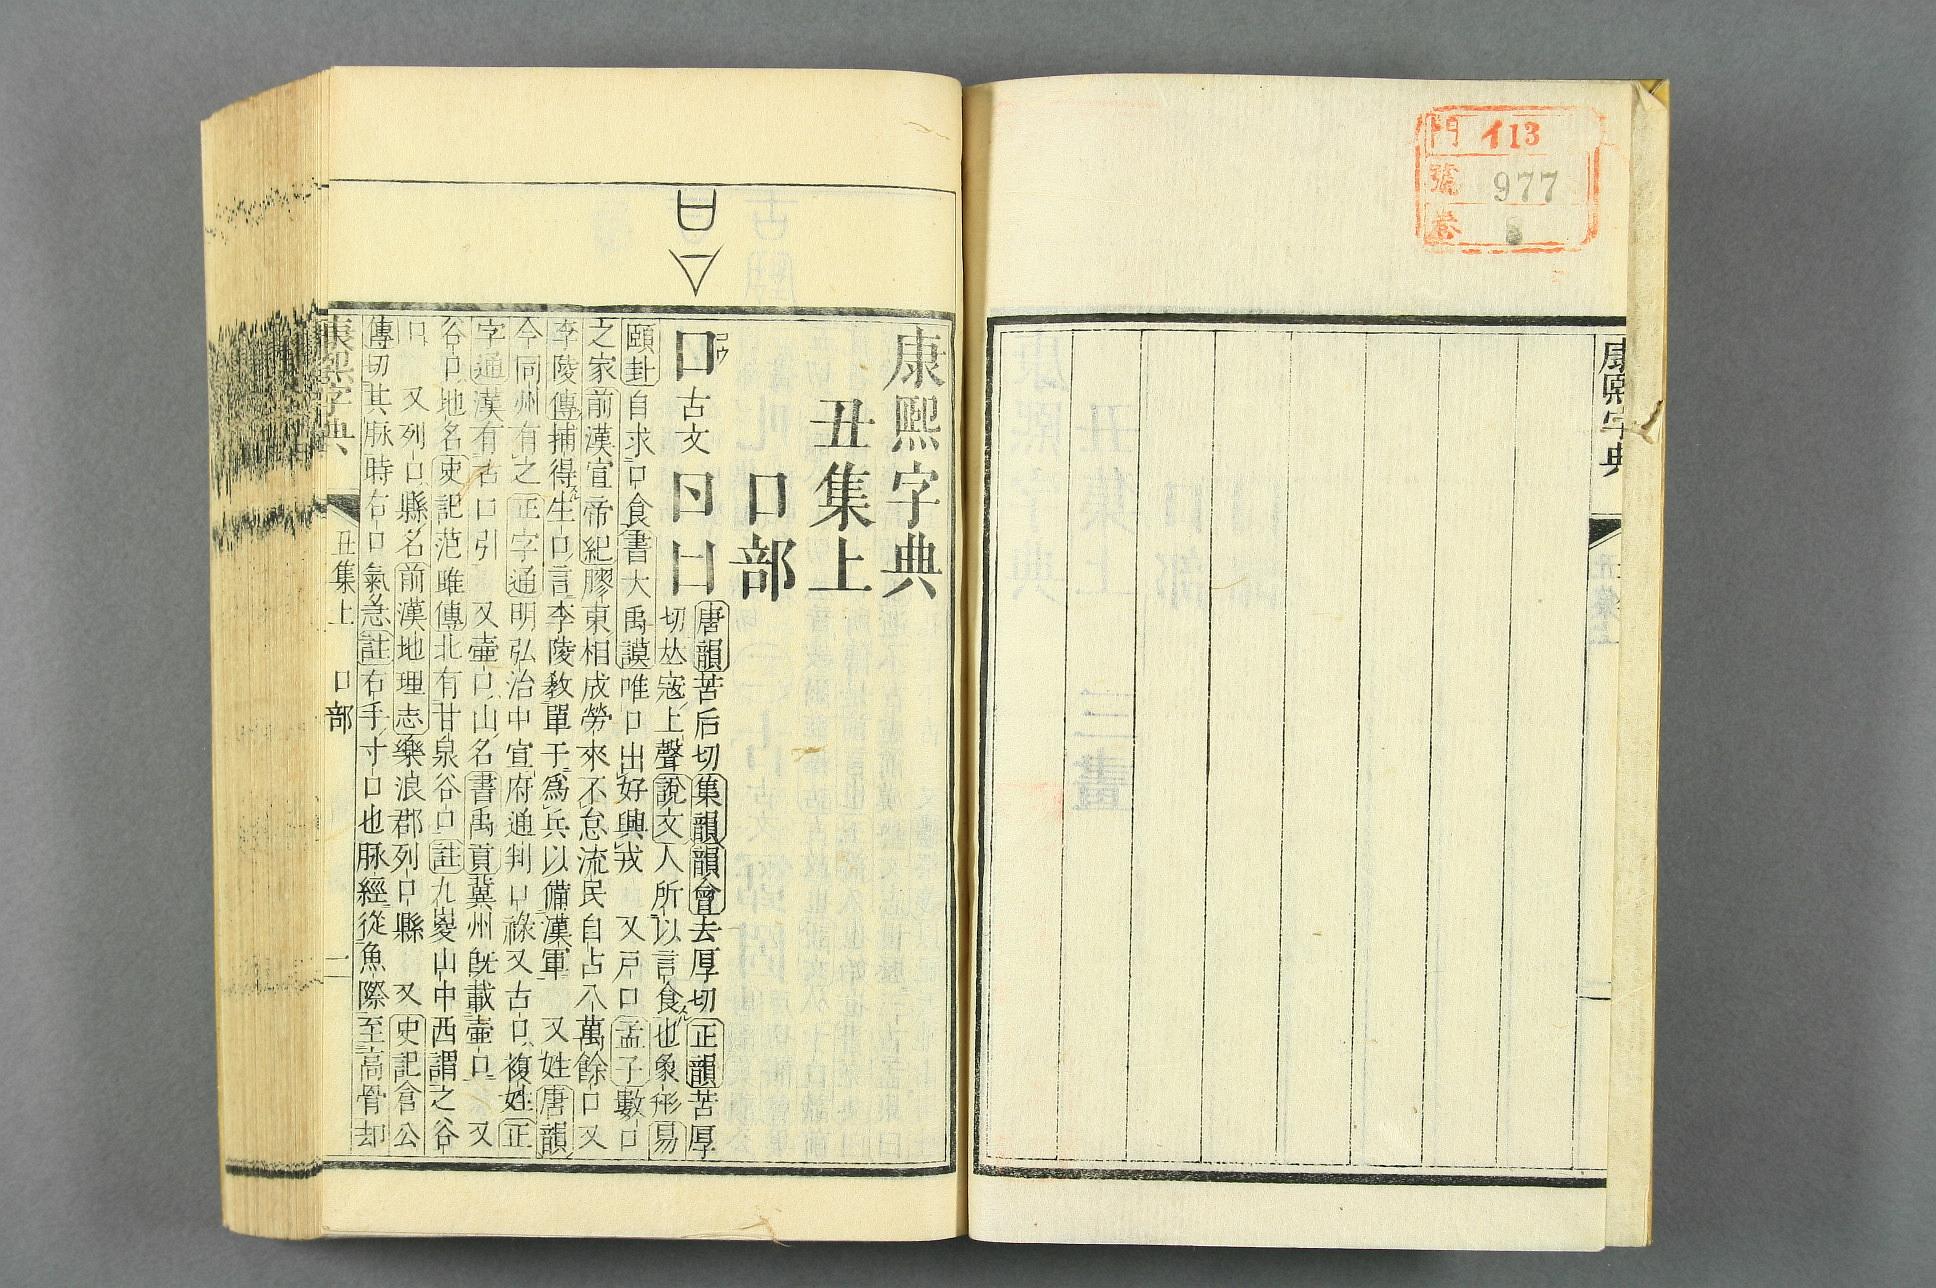 門 イ13
號 977
卷 8
康熙字典
康熙字典
丑集上
口部
口 古文 唐韻苦后切集韻韻會去厚切正韻苦厚
コウ
切𠀤寇上聲說文人所以言食也象形易
頤卦自求口食書大禹謨唯口出好興戎 又戸口孟子數口
之家前漢宣帝紀膠東相成勞來不怠流民自占八萬餘口又
李陵傳捕得生口言李陵敎單于爲兵以備漢軍 又姓唐韻
今同州有之正字通明弘治中宣府通判口祿又古口複姓正
字通漢有古口引 又壷口山名書禹貢冀州旣載壷口 又
谷口地名史記范雎傳北有甘泉谷口註九嵏山中西謂之谷
口 又列口縣名前漢地理志樂浪郡列口縣 又史記倉公
傳切其脉時右口氣急註右手寸口也脉經從魚際至高骨却
康熙字典 丑集上 口部 二